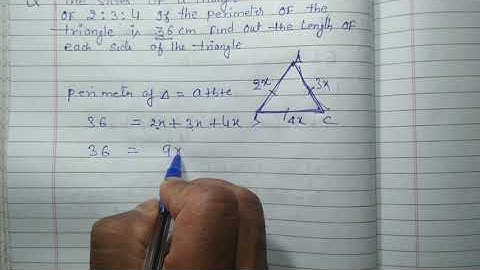 Q The sides of a triangle
of 2:3:4 If the perimeter of the
triangle is 36 cm find out the length of
each side of the triangle
A
2x 3x
4x C
perimeter of Δ = a+b+c
36 = 2x + 3x + 4x
36 = 9x